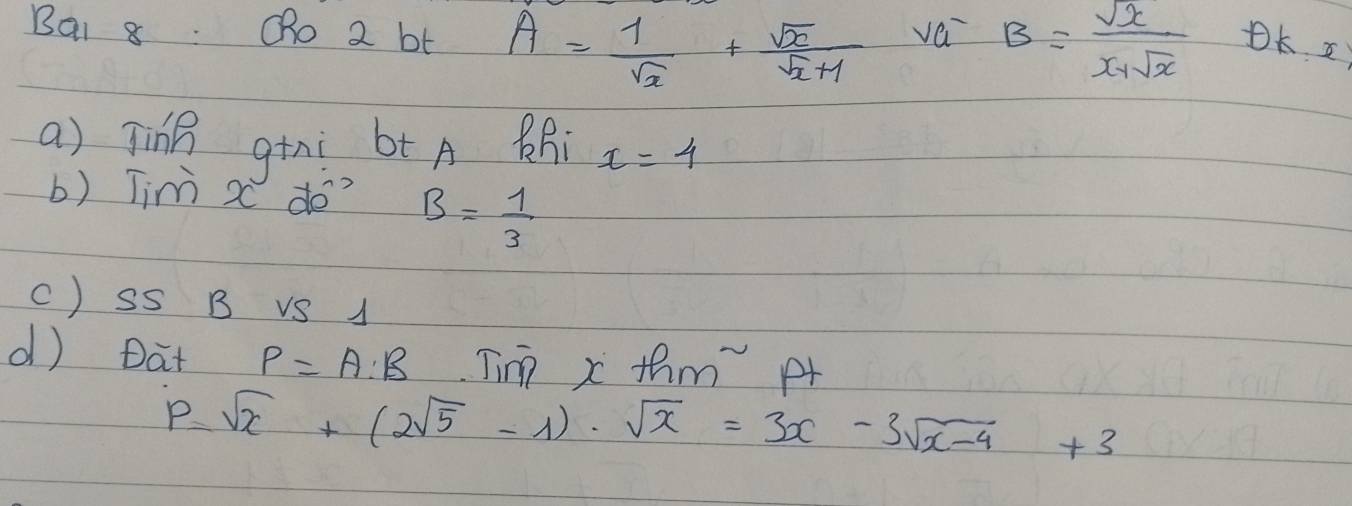 Bài 8 : Cho 2 bt A = 1/√x + √x/(√x+1) và B = √x/(x+√x) Đk x>
a) Tính gtri bt A khi x = 4
b) Tìm x để B = 1/3
c) ss B vs 1
d) Đặt P = A:B . Tìm x thm~ pt
P.√x + (2√5 - 1).√x = 3x - 3√(x-4) + 3